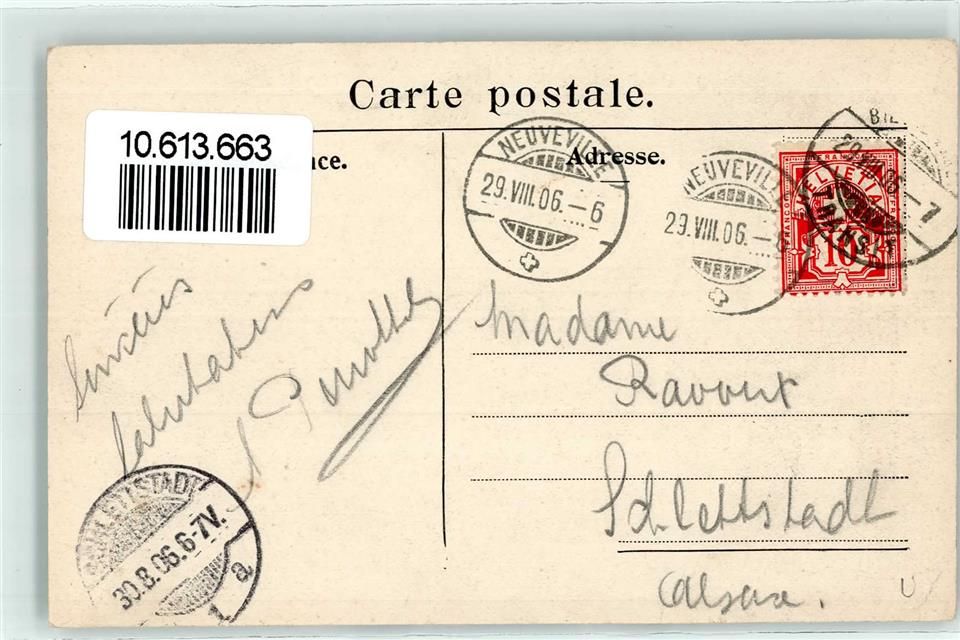 Carte postale.
10.613.663
nce.
Adresse.
NEUVEVILLE
29.VIII.06.-6
NEUVEVILLE
29.VIII.06.-6
BIE
29.VIII.06.-7
TRANS
FRANCO
HELVETIA
10
Sincères
salutations
Madame
Ravoux
Schlettstadt
Alsace.
SCHLETTSTADT
30.8.06.6-7V.
a
U